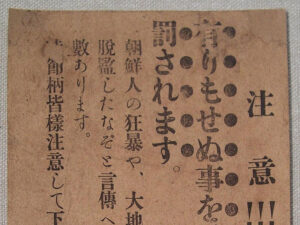 注意!!!
有りもせぬ事を
罰されます。
朝鮮人の狂暴や、大地
脱監したなぞと言傳へ
數あります。
時節柄皆樣注意して下